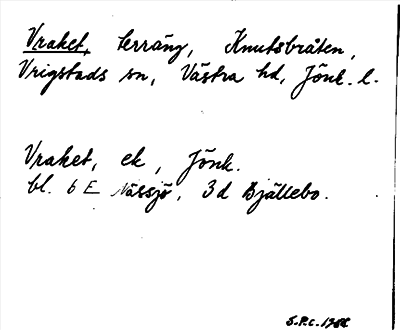 Vraket, terräng, Knutsbråten,
Vrigstads sn, Västra hd, Jönk. l.
Vraket, ek, Jönk.
bl. 6 E Nässjö, 3 d Bjällebo.
S.P.C.